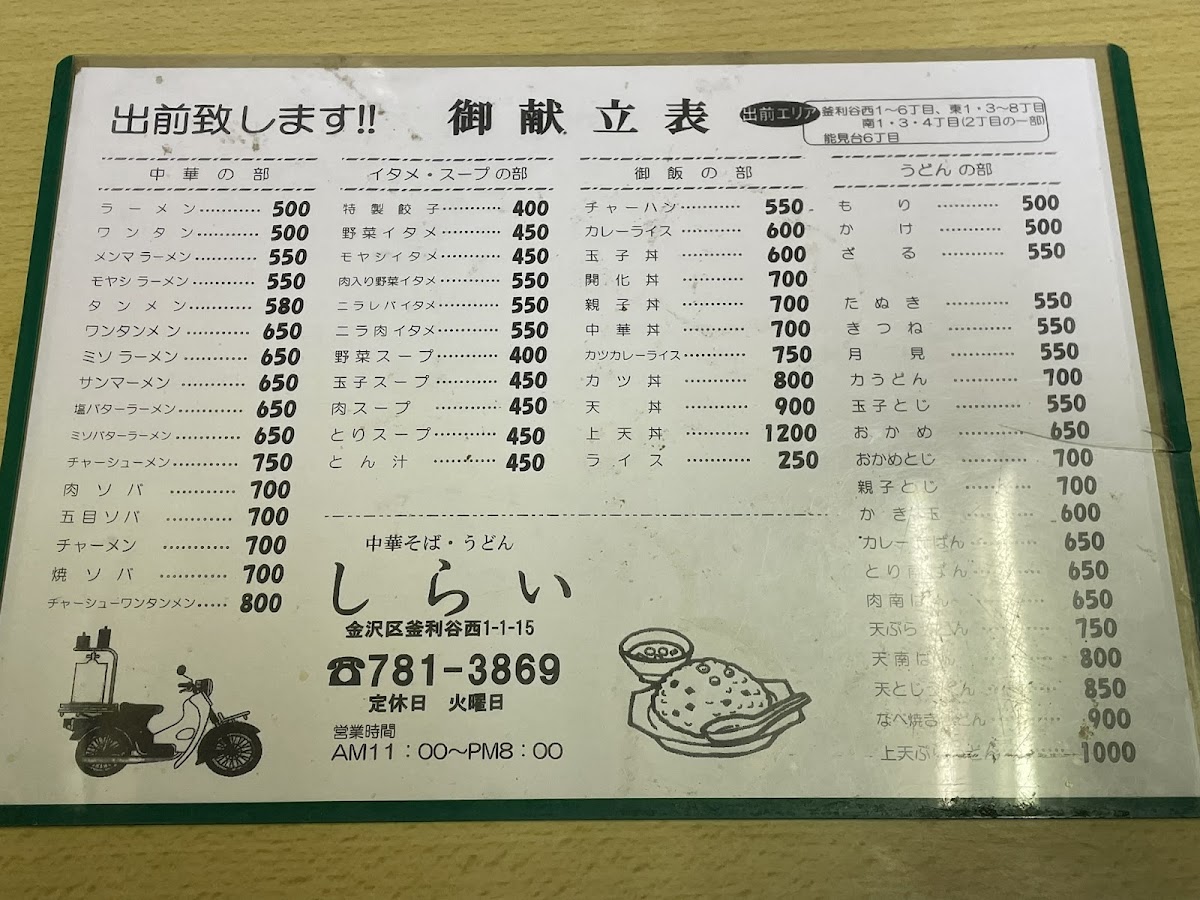 出前致します!!
御献立表
出前エリア
釜利谷西1〜6丁目、東1・3〜8丁目
南1・3・4丁目(2丁目の一部)
能見台6丁目
中華の部
ラーメン………… 500
ワンタン………… 500
メンマラーメン………… 550
モヤシラーメン………… 550
タンメン………… 580
ワンタンメン………… 650
ミソラーメン………… 650
サンマーメン………… 650
塩バターラーメン………… 650
ミソバターラーメン………… 650
チャーシューメン………… 750
肉ソバ………… 700
五目ソバ………… 700
チャーメン………… 700
焼ソバ………… 700
チャーシューワンタンメン…… 800
イタメ・スープの部
特製餃子………… 400
野菜イタメ………… 450
モヤシイタメ………… 450
肉入り野菜イタメ………… 550
ニラレバイタメ………… 550
ニラ肉イタメ………… 550
野菜スープ………… 400
玉子スープ………… 450
肉スープ………… 450
とりスープ………… 450
とん汁………… 450
御飯の部
チャーハン………… 550
カレーライス………… 600
玉子丼………… 600
開化丼………… 700
親子丼………… 700
中華丼………… 700
カツカレーライス………… 750
カツ丼………… 800
天丼………… 900
上天丼………… 1200
ライス………… 250
うどんの部
もり………… 500
かけ………… 500
ざる………… 550
たぬき………… 550
きつね………… 550
月見………… 550
力うどん………… 700
玉子とじ………… 550
おかめ………… 650
おかめとじ………… 700
親子とじ………… 700
かき玉………… 600
カレー ばん………… 650
とり南ばん………… 650
肉南ばん………… 650
天ぷら どん………… 750
天南ばん………… 800
天とじうどん………… 850
なべ焼きうどん………… 900
上天ぷ どん………… 1000
中華そば・うどん
しらい
金沢区釜利谷西1-1-15
☎781-3869
定休日 火曜日
営業時間
AM11:00〜PM8:00